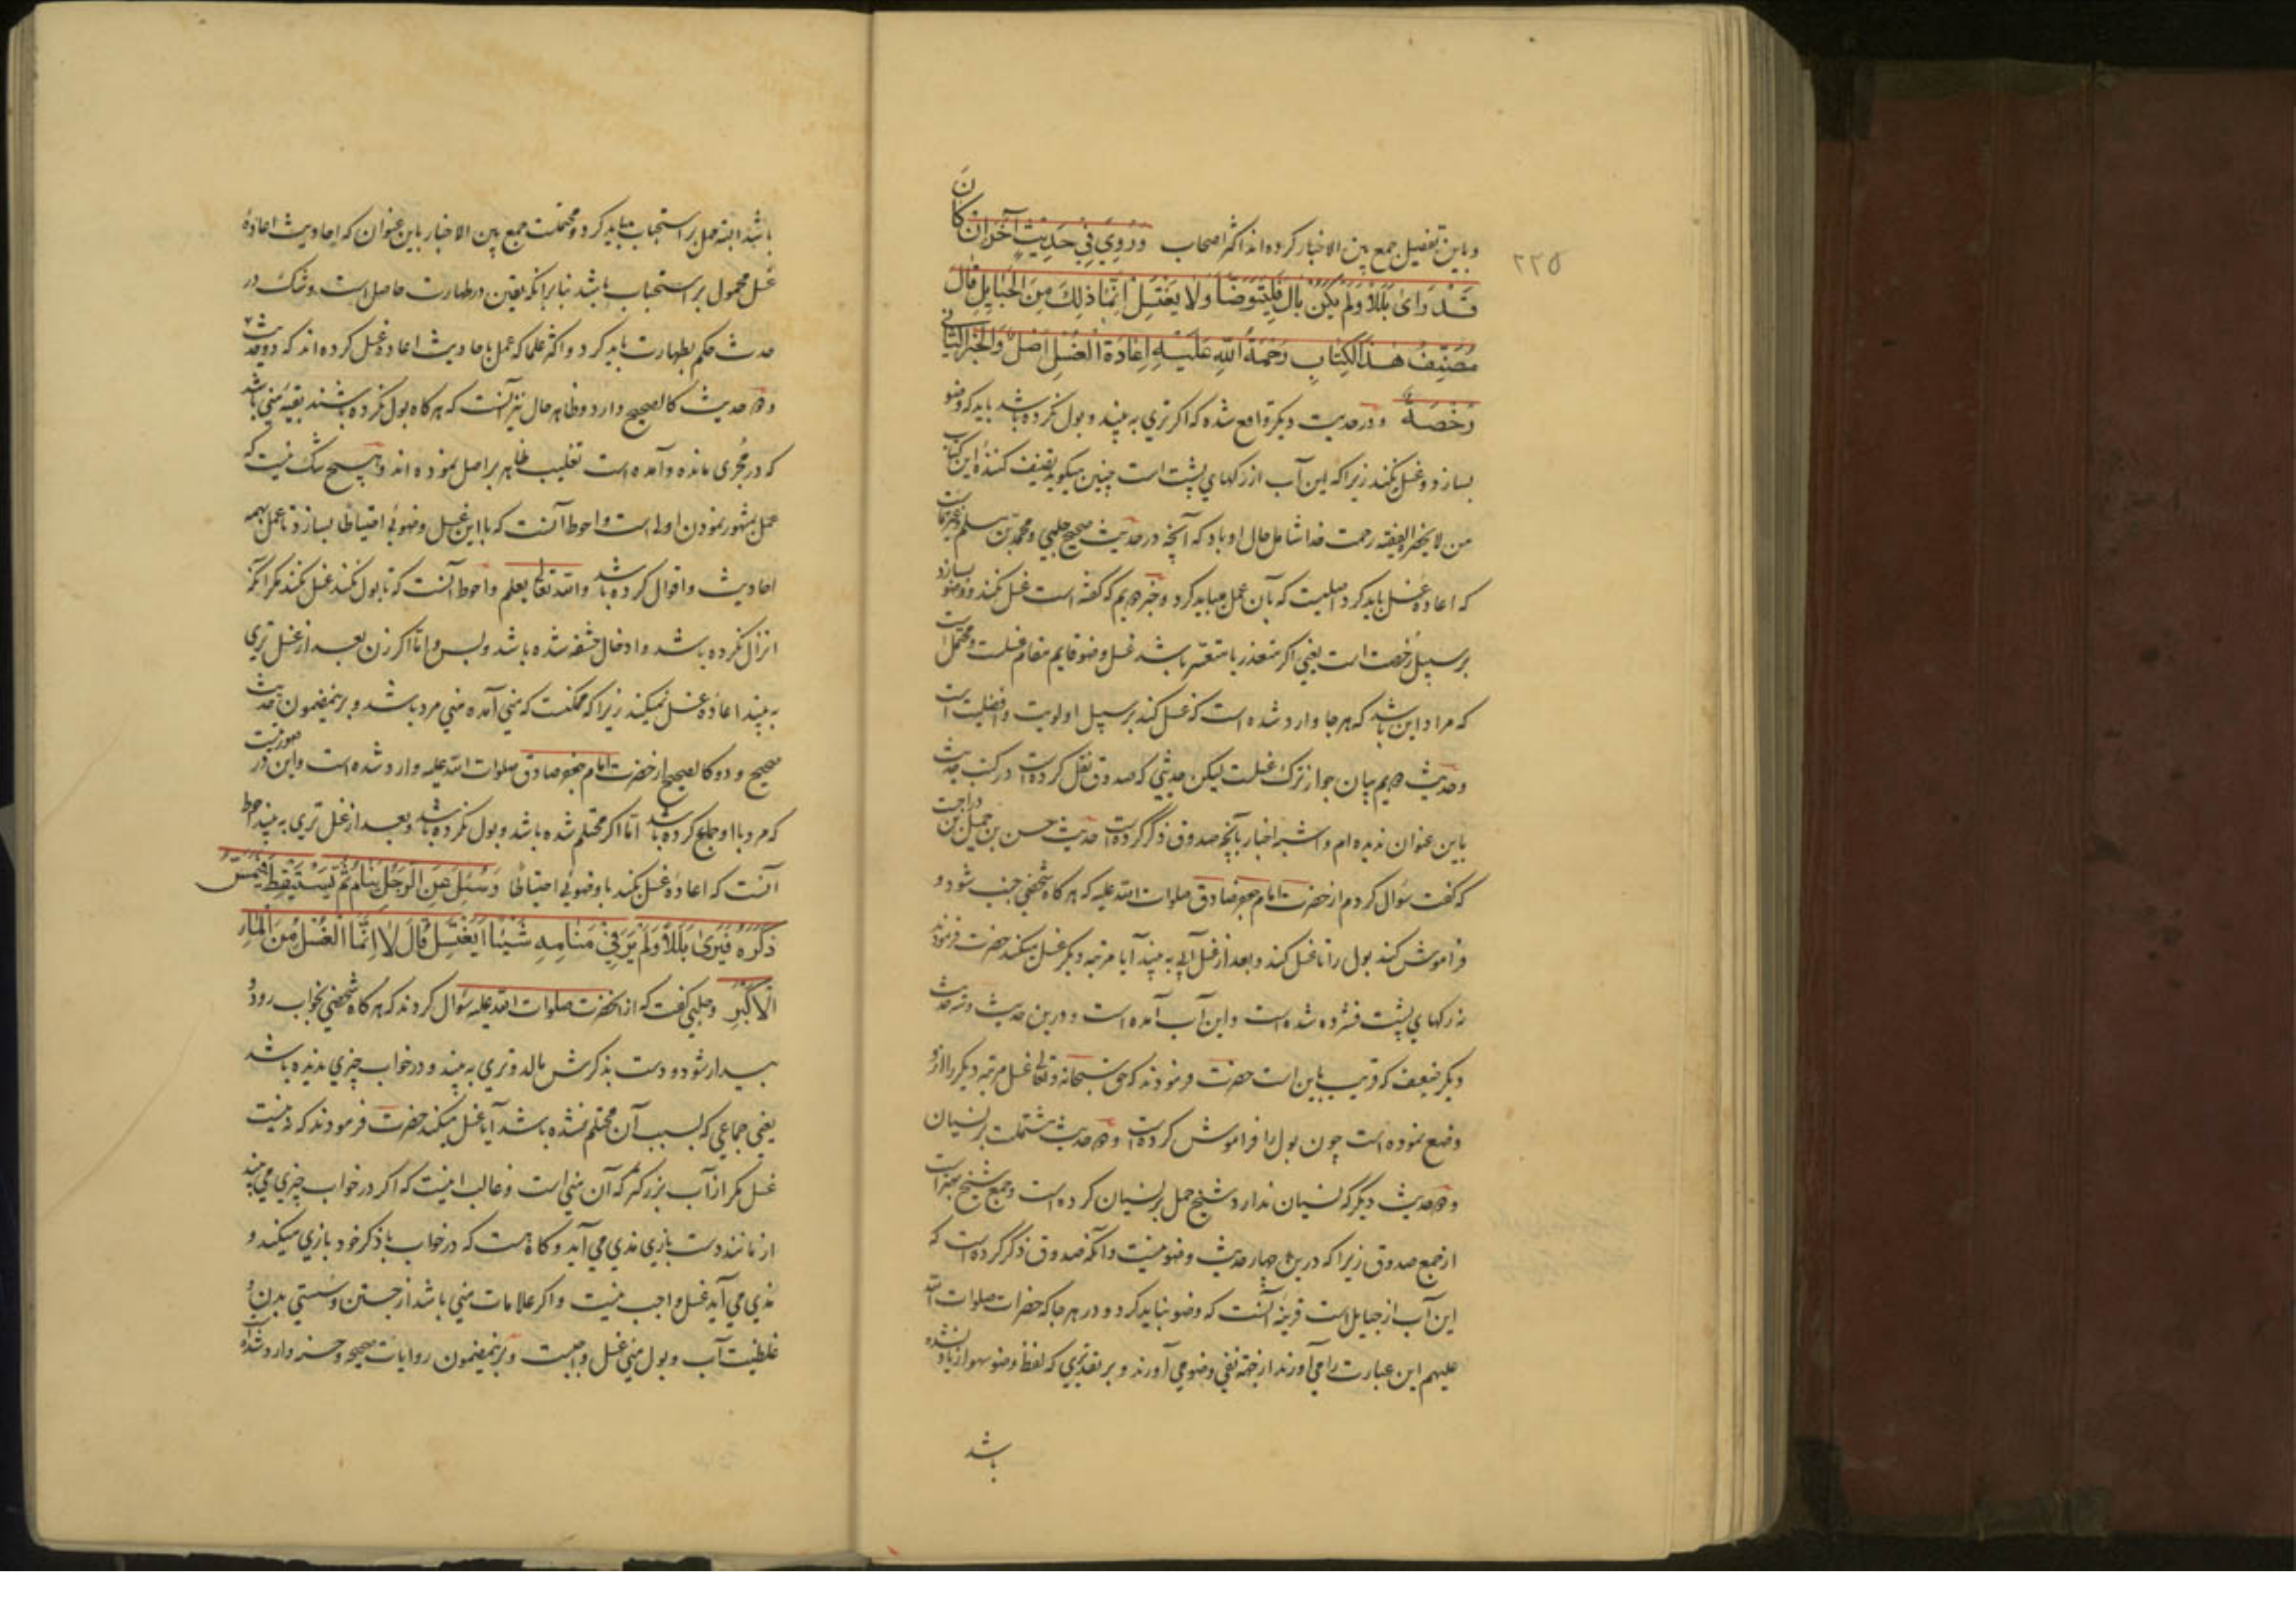 ۲۲۵
و باین تفصیل جمع بین الاخبار کرده‌اند اکثر اصحاب وَرُوِيَ فِي حَدِيثٍ آخَرَ اِنْ كَانَ
قَدْ رَاىٰ بَلَلًا وَلَمْ يَكُنْ بَالَ فَلْيَتَوَضَّأْ وَلَا يَغْتَسِلْ اِنَّمَا ذٰلِكَ مِنَ الْحَبَايِلِ قَالَ
مُصَنِّفُ هٰذَا الْكِتَابِ رَحْمَةُ اللّٰهِ عَلَيْهِ اِعَادَةُ الْغُسْلِ اَصْلٌ وَالْخَبَرُ الثَّانِي
رُخْصَةٌ و در حدیث دیگر واقع شده که اکر تری به بیند و بول نکرده باشد باید که وضو
بسازد و غسل نکند زیرا که این آب از رکهای پشت است چنین میکوید تصنیف کنندهٔ این کتاب
من لا یحضره الفقیه رحمت خدا شامل حال او باد که آنچه در حدیث صحیح حلبی و محمد بن مسلم
که اعاده غسل باید کرد اصلیست که بآن عمل میباید کرد و خبر دویم که کفته است غسل نکند و وضو بسازد
بر سبیل رخصت است یعنی اکر متعذر یا متعسر باشد غسل وضو قایم مقام غسلست و محتمل است
که مراد این باشد که هر جا وارد شده است که غسل کند بر سبیل اولویت و افضلیت است
و حدیث دویم بیان جواز ترک غسلست لیکن حدیثی که صدوق نقل کرده است در کتب حدیث
باین عنوان ندیده‌ام و اشبه اخبار بآنچه صدوق ذکر کرده است حدیث حسن بن جمیل بن دراجست
که کفت سؤال کردم از حضرت امام جعفر صادق صلوات الله علیه که هر کاه شخصی جنب شود و
فراموش کند بول را تا غسل کند و بعد از غسل آبی به بیند آیا مرتبه دیگر غسل میکند حضرت فرمودند
نه رکهای پشت فشرده شده است و این آب آمده است و درین حدیث و سه حدیث
دیگر ضعیف که قریب باین است حضرت فرمودند که حق سبحانه و تعالی غسل مرتبه دیگر را از او
وضع نموده است چون بول را فراموش کرده است و دو حدیث مشتملست بر نسیان
و دو حدیث دیگر که نسیان ندارد شیخ حمل بر نسیان کرده است و جمع شیخ بهتر است
از جمع صدوق زیرا که درین چهار حدیث وضو نیست و آنکه صدوق ذکر کرده است که
این آب از حبایل است قرینه آنست که وضو نباید کرد و در هر جا که حضرات صلوات الله
علیهم این عبارت را می‌آورند از جهة نفی وضو می‌آورند و بر تقدیری که لفظ وضو سهوا زیاد نشده
باشد
باشد البته حمل بر استحباب میباید کرد و محتملست جمع بین الاخبار باین عنوان که احادیث اعادهٔ
غسل محمول بر استحباب باشد بنابر آنکه یقین در طهارت حاصل است و شک در
حدث حکم بطهارت باید کرد و اکثر علما که عمل باحادیث اعاده غسل کرده‌اند که دو حدیث
و دو حدیث کالصحیح وارد و ظاهر حال نیز آنست که هر کاه بول نکرده باشند بقیه منی باشد
که در مجری مانده و آمده است تغلیب ظاهر بر اصل نموده‌اند و هیچ شک نیست که
عمل بمشهور نمودن اولی است و احوط آنست که با این غسل وضوئی احتیاطا بسازد تا عمل بهمه
احادیث و اقوال کرده باشد والله تعالی یعلم و احوط آنست که تا بول نکند غسل نکند مکر آنکه
انزال نکرده باشد و ادخال حشفه شده باشد و بس و اما اکر زن بعد از غسل تری
به بیند اعادهٔ غسل نمیکند زیرا که ممکنست که منی آمده منی مرد باشد و برینمضمون حدیث
صحیح و دو کالصحیح از حضرت امام جعفر صادق صلوات الله علیه وارد شده است و این در صورتیست
که مرد با او جماع کرده باشد اما اکر محتلم شده باشد و بول نکرده باشد و بعد از غسل تری به بیند احوط
آنست که اعادهٔ غسل بکند با وضوئی احتیاطا وَسُئِلَ عَنِ الرَّجُلِ يَنَامُ ثُمَّ يَسْتَيْقِظُ فَيَمَسُّ
ذَكَرَهُ فَيَرَىٰ بَلَلًا وَلَمْ يَرَ فِي مَنَامِهِ شَيْئًا اَيَغْتَسِلُ قَالَ لَا اِنَّمَا الْغُسْلُ مِنَ الْمَاءِ
الْاَكْبَرِ و حلبی کفت که از آنحضرت صلوات الله علیه سؤال کردند که هر کاه شخصی بخواب رود و
بیدار شود و دست بذکرش مالد و تری به بیند و در خواب چیزی ندیده باشد
یعنی جماعی که بسبب آن محتلم شده باشد آیا غسل میکند حضرت فرمودند که نیست
غسل مکر از آب بزرکتر که آن منی است و غالب اینست که اکر در خواب چیزی می بیند
از مانند دست بازی مذی می‌آید و کاه هست که در خواب با ذکر خود بازی میکند و
مذی می‌آید غسل واجب نیست و اکر علامات منی باشد از جستن و سستی بدن و
غلظت آب و بوی منی غسل واجبست و برینمضمون روایات صحیحه و حسنه وارد شده است